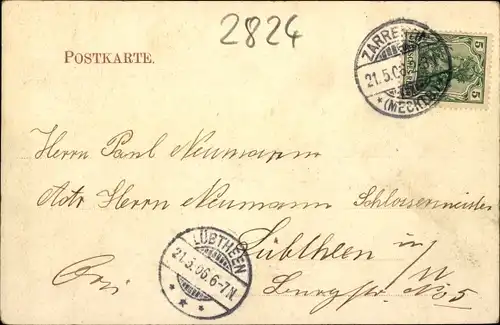 2824
POSTKARTE.
ZARRENTIN
21.5.06
*(MECKLB.)*
5 5
Herrn Paul Neumann
Adr Herrn Neumann Schlossermeister
Lübtheen i/M
LÜBTHEEN
21.5.06.6-7N.
* * *
No 5